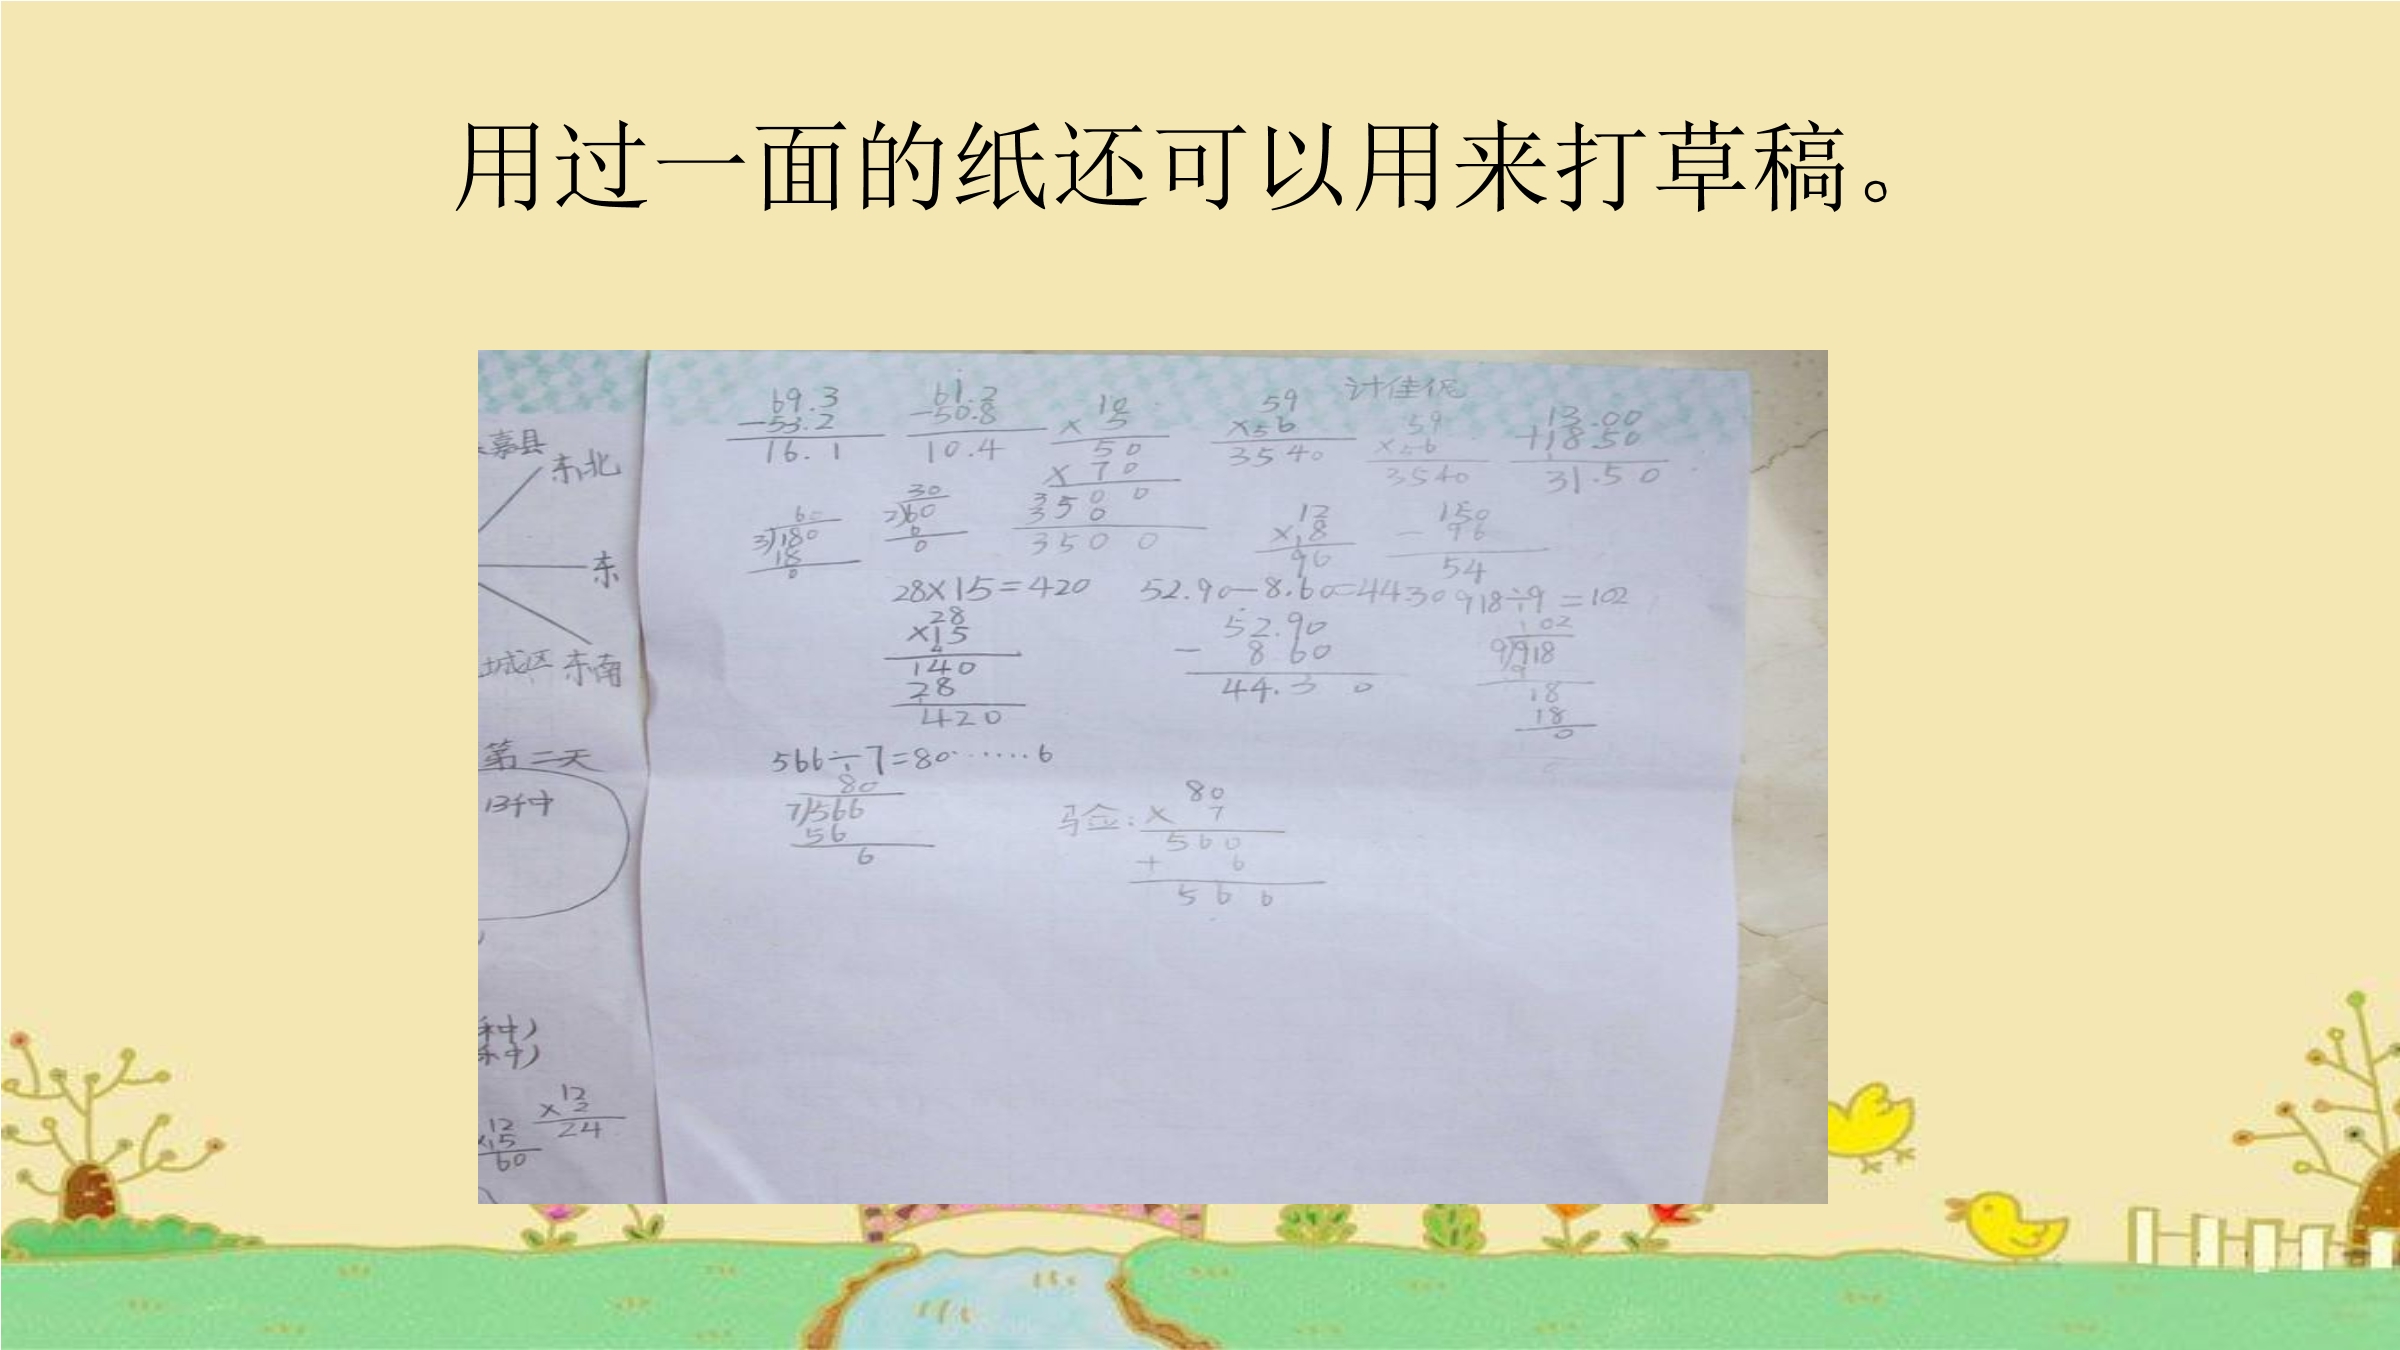 用过一面的纸还可以用来打草稿。
计佳伲
69.3
-53.2
16.1
61.2
-50.8
10.4
10
× 5
50
× 70
3500
350
3500
59
×56
3540
59
×56
3540
13.00
+18.50
31.50
60
3)180
18
0
30
2)60
6
0
12
×18
96
150
- 96
54
28×15=420
28
×15
140
28
420
52.90-8.60=44.30
52.90
- 8 60
44.30
918÷9=102
102
9)918
9
18
18
0
566÷7=80……6
80
7)566
56
6
马佥:
80
× 7
560
+ 6
566
嘉县
东北
东
城区 东南
第二天
13种
种)
种)
12
×15
60
12
× 2
24